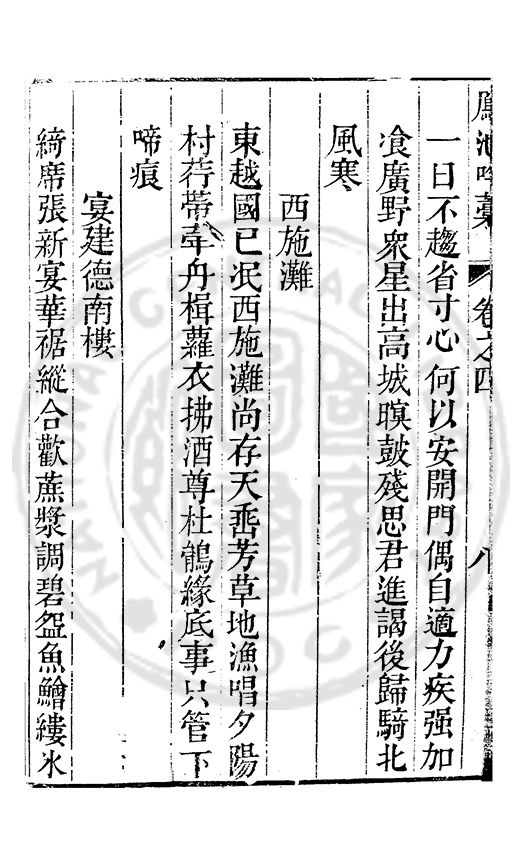 鳳池吟藁 卷之四 八
一日不趨省寸心何以安開門偶自適力疾强加
飡廣野衆星出高城暝鼓殘思君進謁後歸騎北
風寒
西施灘
東越國已泯西施灘尚存天垂芳草地漁唱夕陽
村荇帶牽舟楫蘿衣拂酒尊杜鵑緣底事只管下
啼痕
宴建德南樓
綺席張新宴華裾縱合歡蔗漿調碧盌魚鱠縷氷